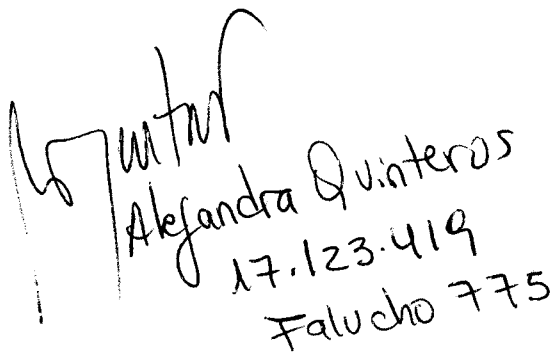 Alejandra Quinteros
17.123.419
Falucho 775